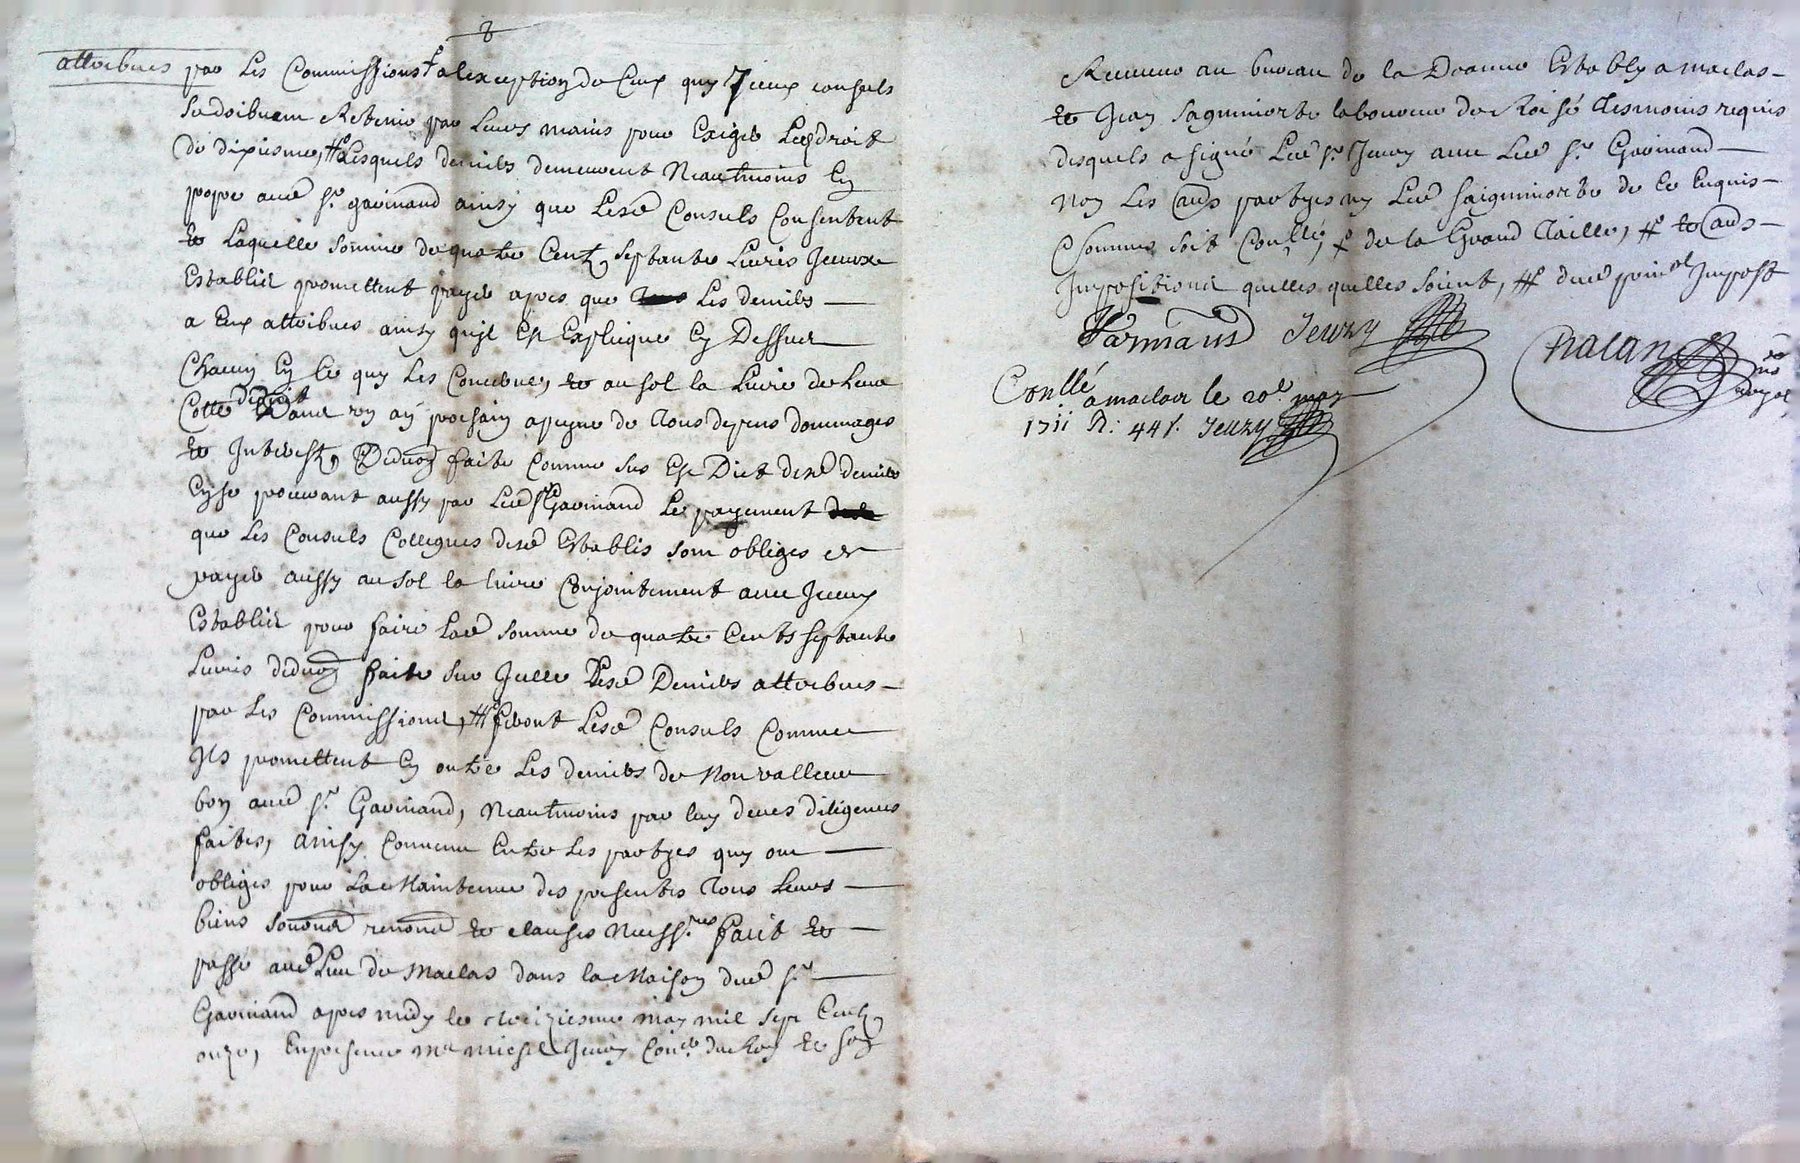 8
attribues par les Commissions ꝉ alexception de Ceux quy Iceux consuls
Se doibvent Retenir par leurs mains pour Exiger Led droit
de dixiesme, # Lesquels deniers demeurent Neautmoins En
pope aud sr. gavinand ainsy que Lesd Consuls Consentent
Et Laquelle Somme de quatre Cents septante Livres Iceuxd
Establis promettent payer apres que Les deniers
a Eux attribues ainsy quil Est Explicque Cy Dessus
Chacun En Ce quy Les Concerne, Et au sol la Livre de Leur
Cotte Dhuy En un an prochain a peyne de Tous depens dommages
Et Interests, Deduon faite Comme sus Est Dict desd deniers
En se prouvant aussy par Led sr Gavinand Le payement
que Les Consuls Collegues desd Establis sont obliges de
payer aussy au sol la livre Conjointement avec Iceux
Establis pour faire Lad somme de quatre Cents septante
Livres deduon faite sur Icelle Desd Deniers attribues
par Les Commissions, # feront Lesd Consuls Comme
Ils promettent En outre Les deniers de Non valleur
bon aud sr. Gavinand, Neautmoins par luy deues diligences
faites, Ainsy Convenu Entre Les partyes quy ont
obliges pour La Maintenue des presentes Tous Leurs
biens soubmis renond Et clauses Necess.res fait Et
passé aud Lieu de Maclas dans la Maison dud sr.
Gavinand apres midy le treiziesme may mil sept Cents
onze, En presence Mr Michel Jeury Con.er du Roy Et son
Receveur au bureau de la Doanne Estably a maclas
Et Jean Sagnimorte laboureur de Roisé Tesmoins requis
desquels a signé Led sr. Jeury avec Led sr. Gavinand
Non Les aus partyes ny Led saignimorte de Ce Enquis
Et Sommes soit Conllé, ꝉ de la Grand Taille, # et aus
Impositions quelles quelles soient, # dud prin.al Impost
Jeurzy
Conllé a maclas le 20.e may
1711 R: 44s. Jeurzy